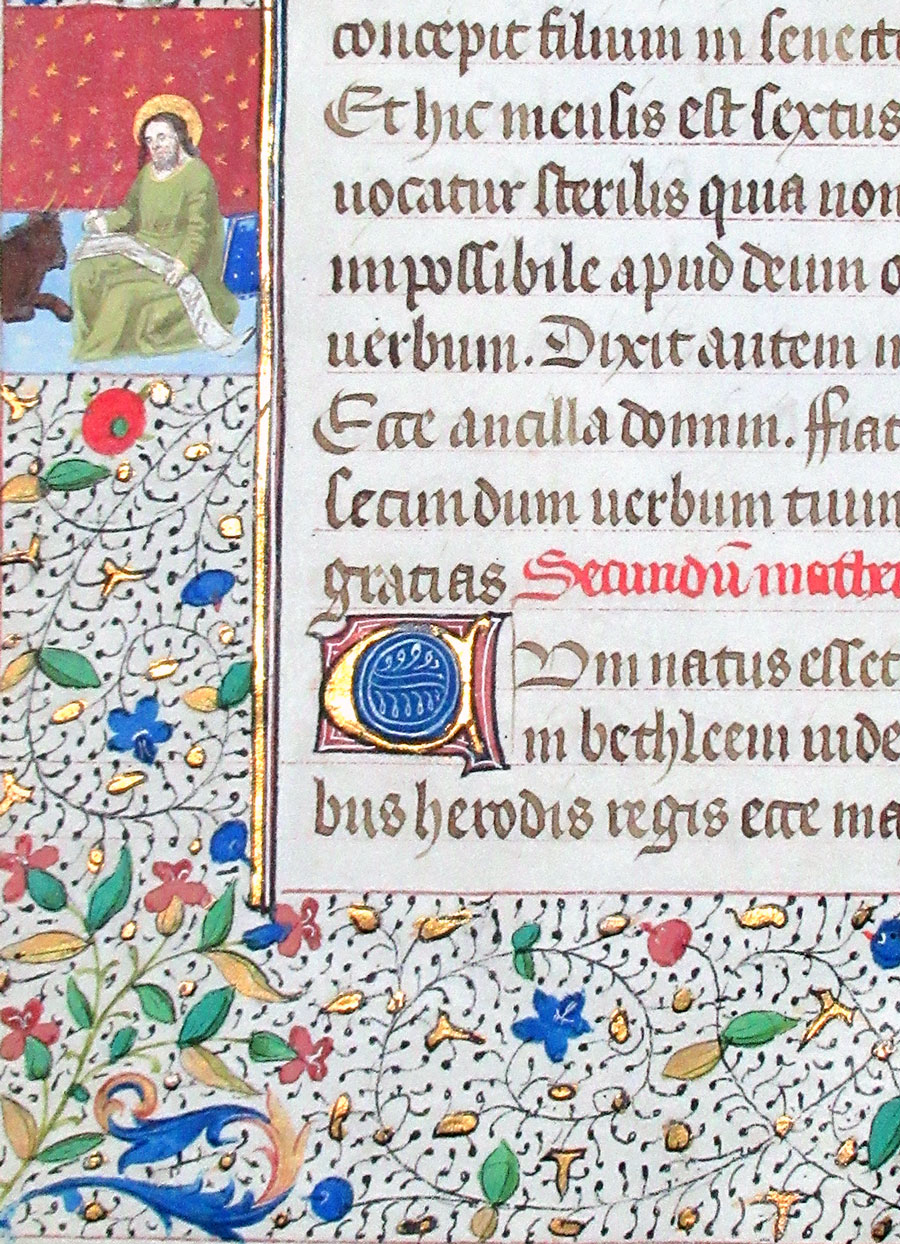 concepit filium in senect
Et hic mensis est sextus
uocatur sterilis quia non
impossibile apud deum o
uerbum. Dixit autem m
Ecce ancilla domini. ffiat
secundum uerbum tuum
gracias Secundū mathe
CVm natus esset
in bethleem iude
bus herodis regis ecce ma